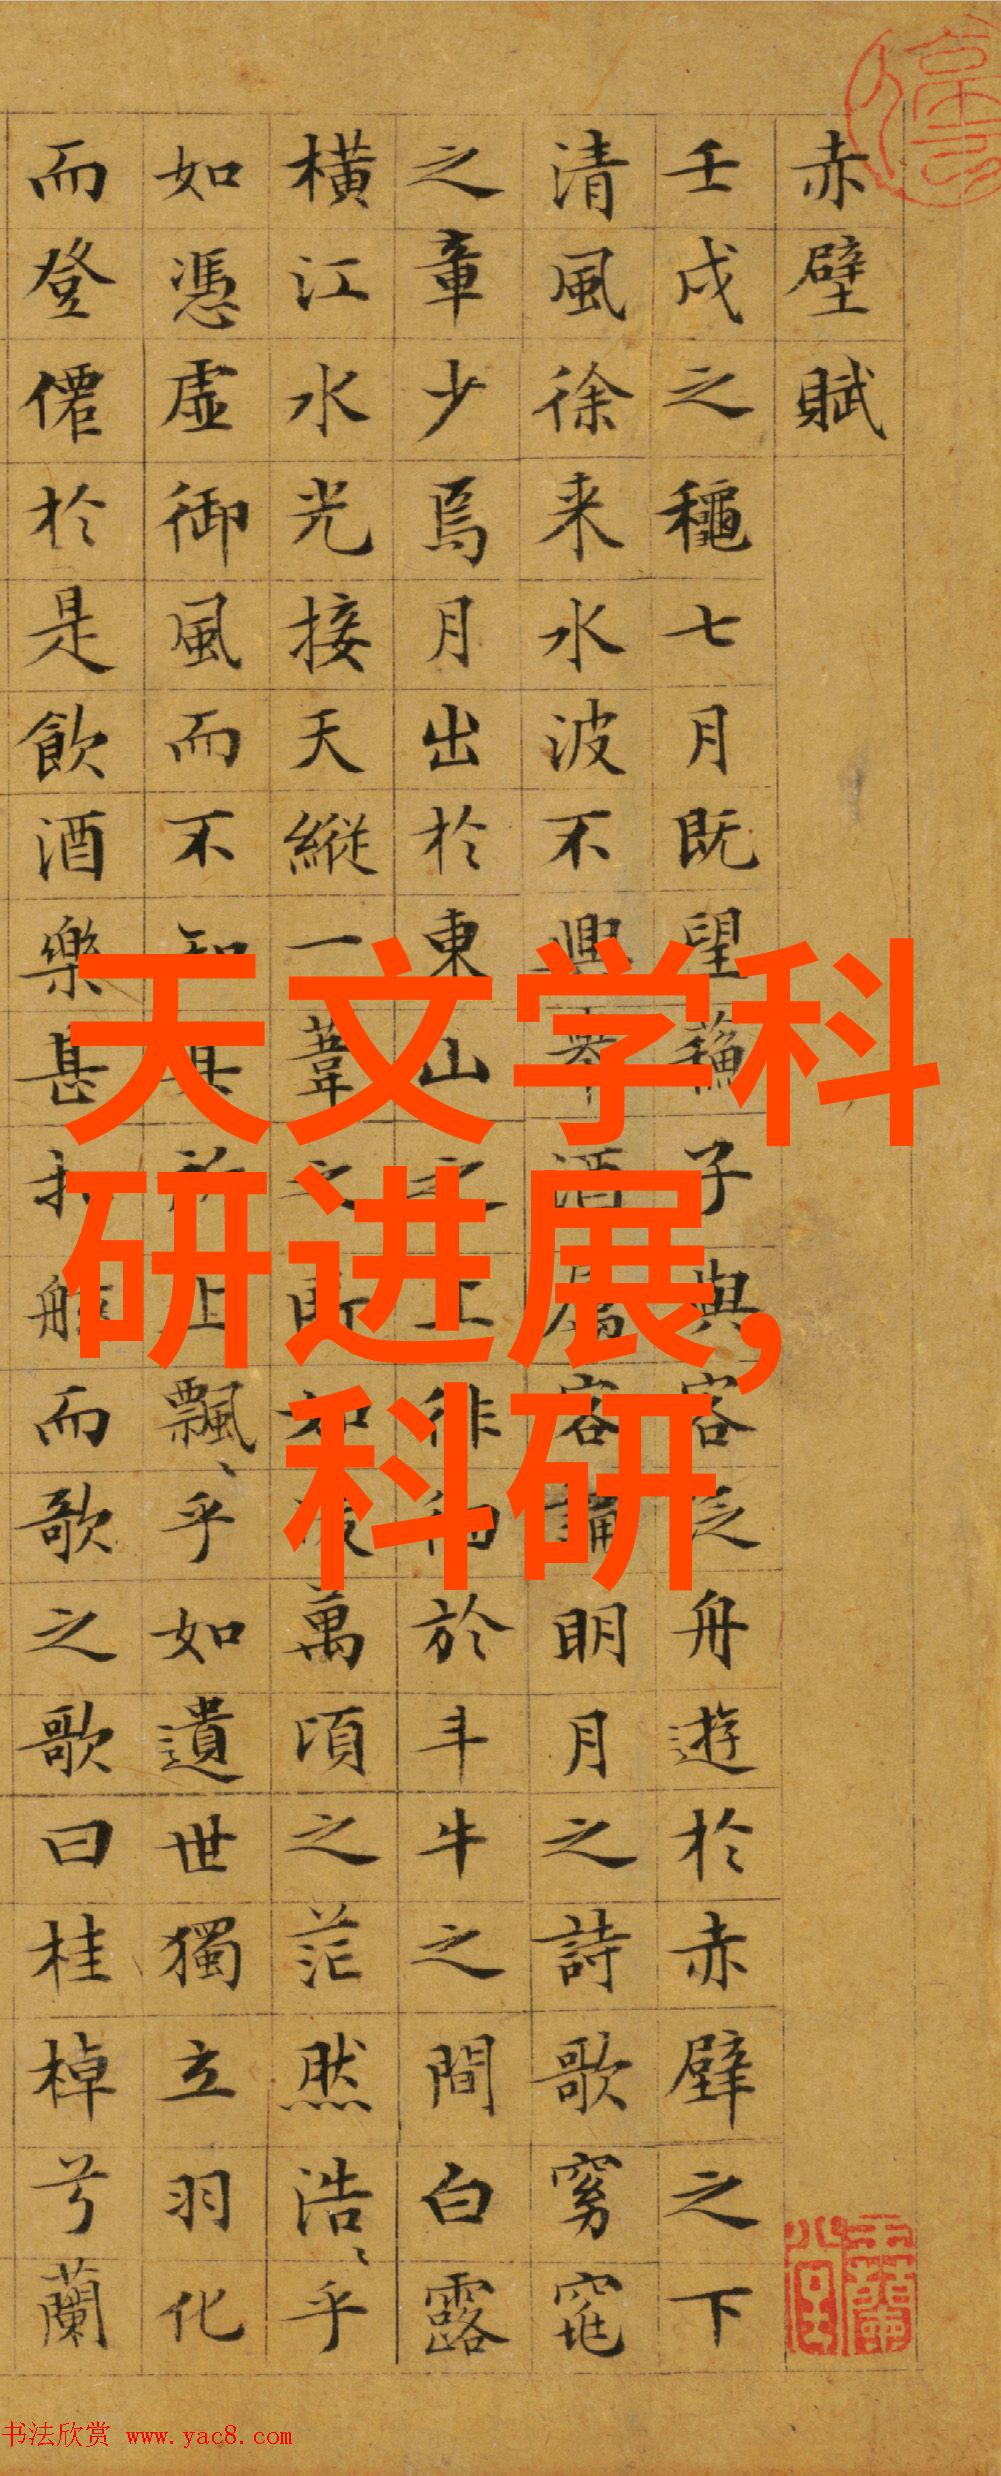 赤壁賦
壬戌之龝七月既望蘓子與客泛舟遊於赤壁之下
清風徐来水波不興舉酒屬客誦明月之詩歌窈窕
之章少焉月出於東山之上徘徊於斗牛之間白露
橫江水光接天縱一葦之所如凌萬頃之茫然浩、乎
如憑虛御風而不知其所止飄、乎如遺世獨立羽化
而登僊於是飲酒樂甚扣舷而歌之歌曰桂棹兮蘭
天文学科
研进展,
科研
书法欣赏 www.yac8.com